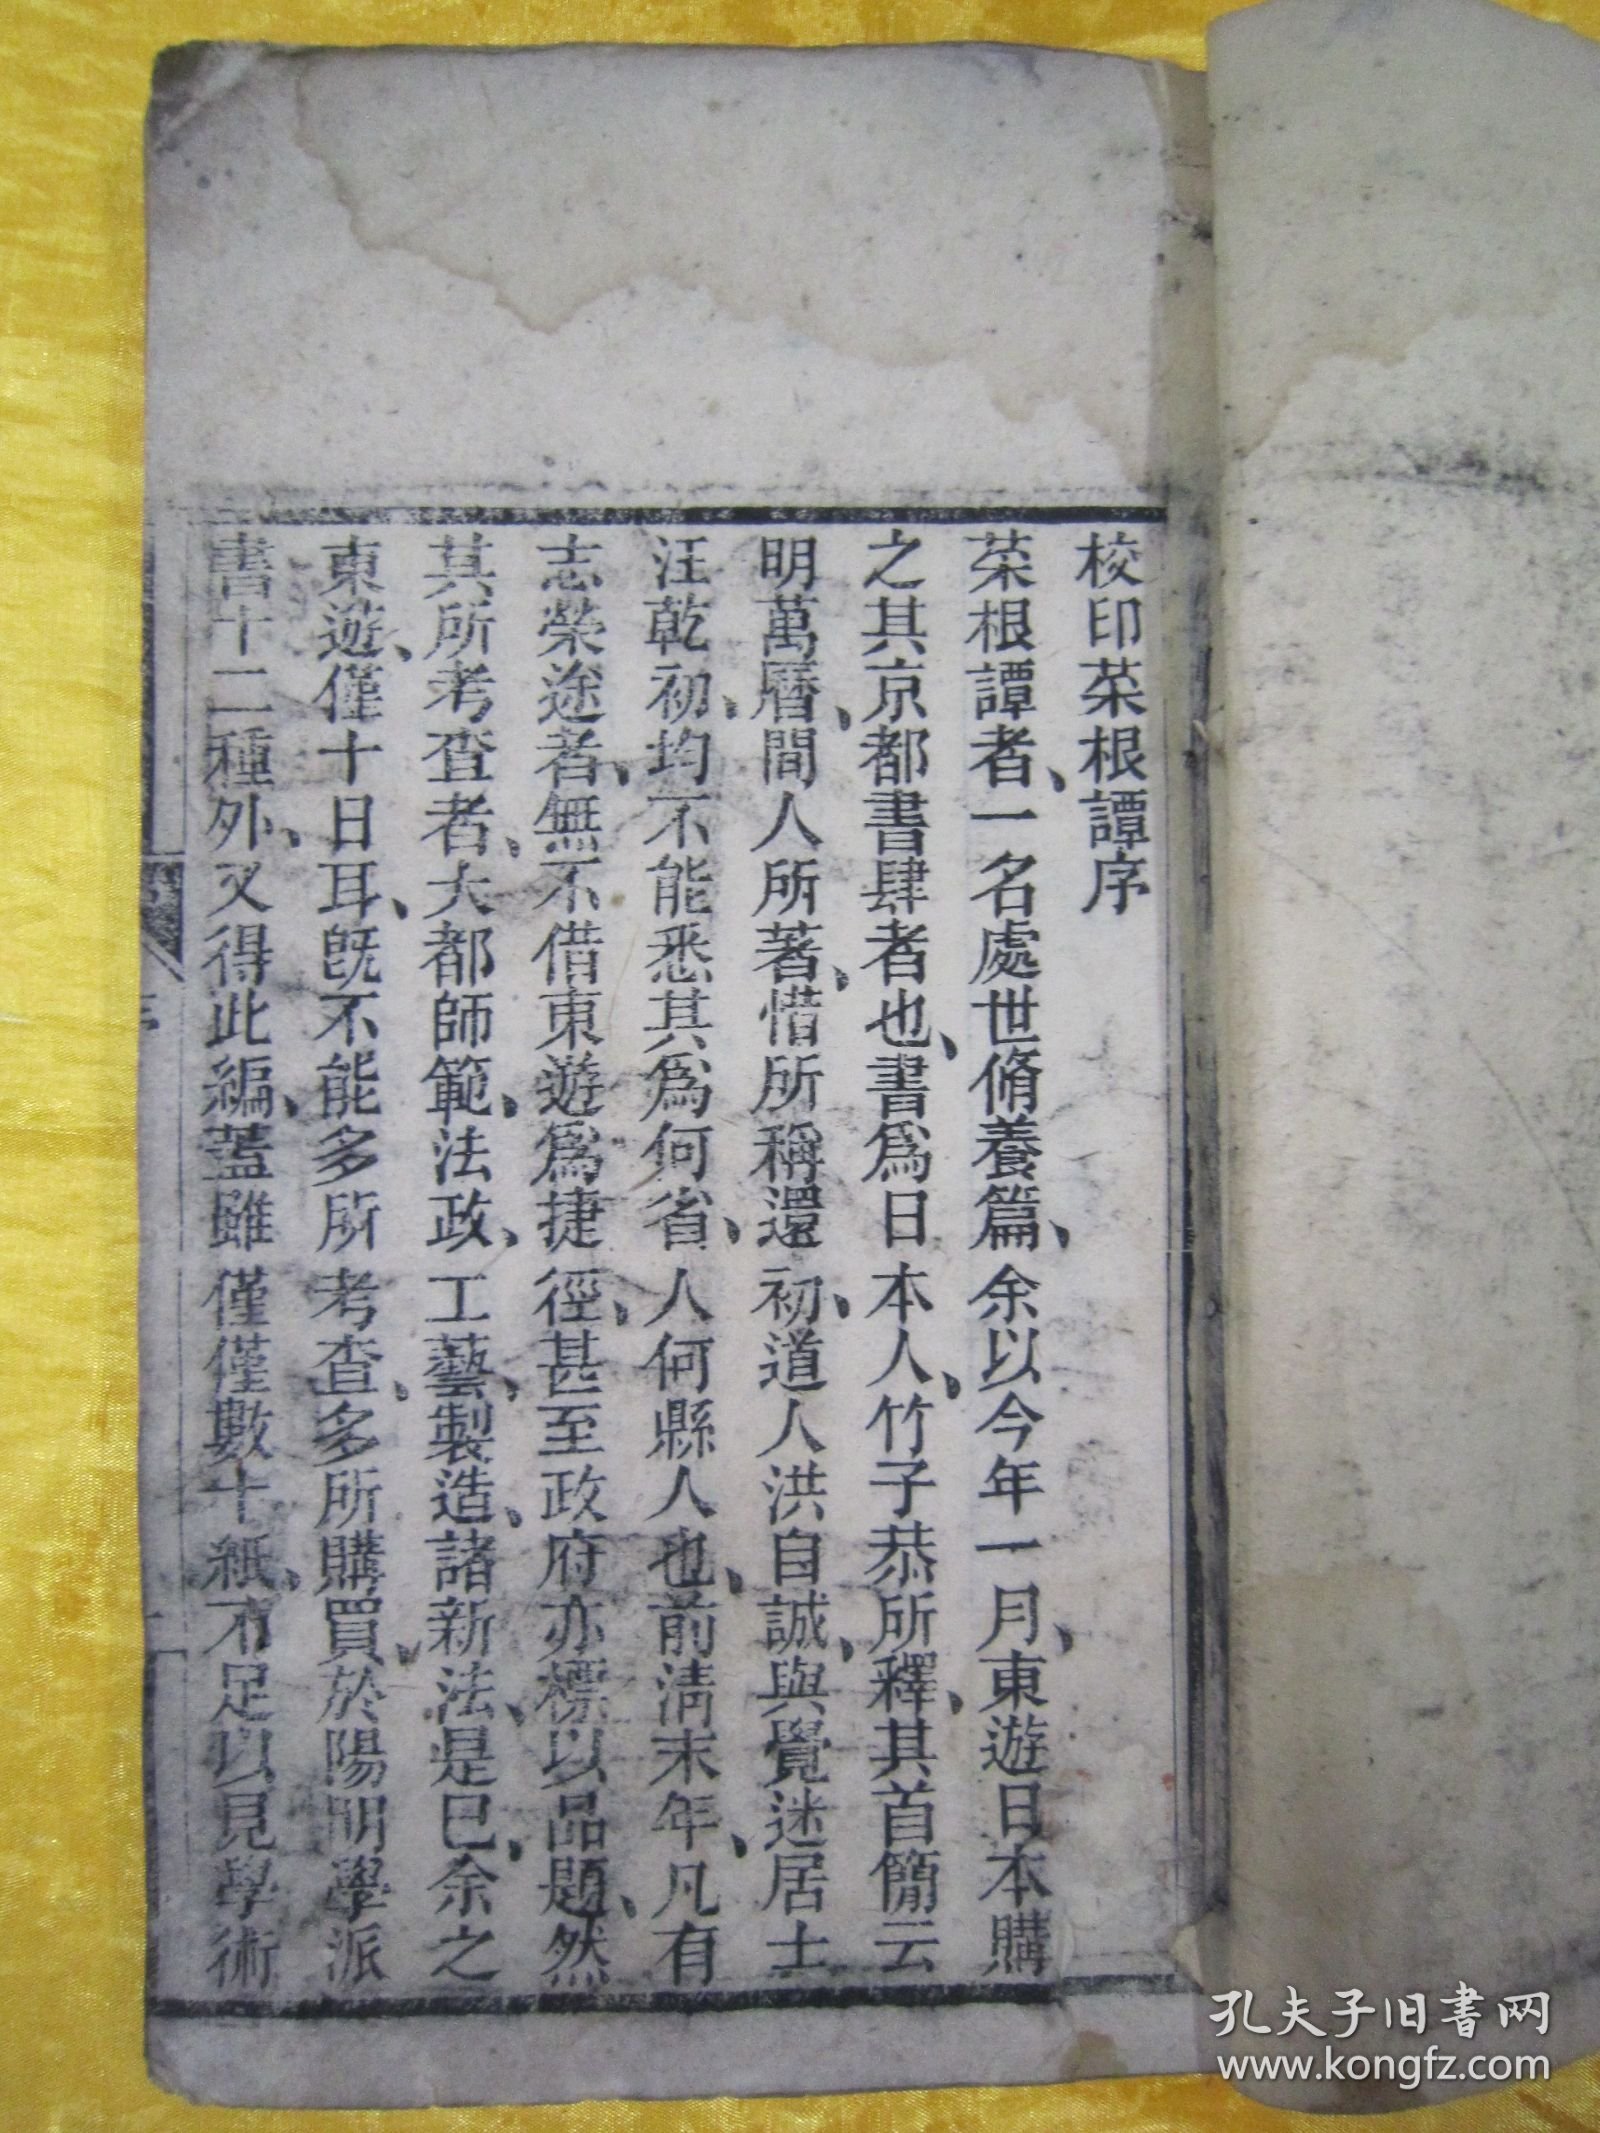 校印菜根譚序
菜根譚者、一名處世脩養篇、余以今年一月、東遊日本購
之其京都書肆者也、書爲日本人、竹子恭所釋、其首簡云
明萬曆、間人所著、惜所稱還初、道人洪自誠、與覺迷居士
汪乾初、均不能悉其爲何省、人何縣人也、前淸末年、凡有
志榮途者、無不借東遊爲捷徑、甚至政府亦標以品題、然
其所考查者、大都師範、法政、工藝、製造、諸新法、是巳、余之
東遊、僅十日耳、旣不能多所考查、多所購買、於陽明學派
書十二種外、又得此編、葢雖僅僅數十紙、不足以見學術
孔夫子旧书网
www.kongfz.com